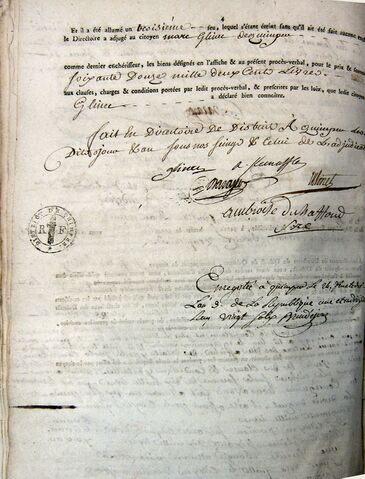 4
Et il a été allumé un troisième feu, lequel s'étant éteint sans qu'il ait été fait aucune
le Directoire a adjugé au citoyen marc Gline de quimper
comme dernier enchérisseur, les biens désignés en l'affiche & au présent procès-verbal, pour le prix & somme
soixante Douze mille deux Cents Livres
aux clauses, charges & conditions portées par ledit procès-verbal, & prescrites par les loix, que ledit citoyen
Gline a déclaré bien connaître.
fait En Directoire de District à quimper Les
Dits jour & an sous nos seings & Celui de L'adjudicataire
Ambroise du haffond
R F
Enregistré à quimper le 26
L'an de la République une et
vingt sols